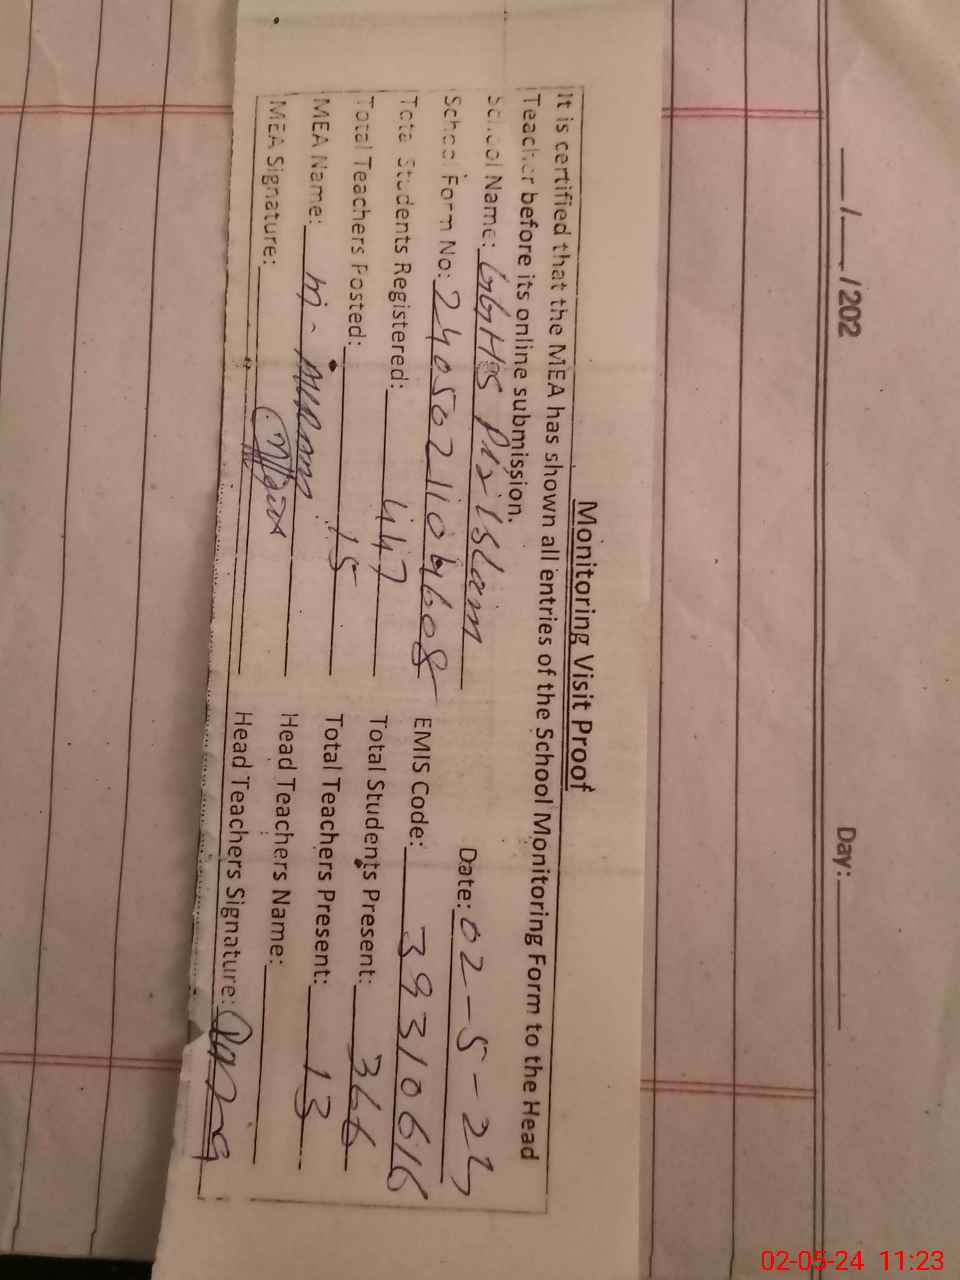 ___/___/202 Day:________
Monitoring Visit Proof
It is certified that the MEA has shown all entries of the School Monitoring Form to the Head
Teacher before its online submission.
School Name: GGHSS Pir Islam Date: 02-5-24
School Form No: 2405021104608 EMIS Code: 39310616
Total Students Registered: 447 Total Students Present: 366
Total Teachers Posted: 15 Total Teachers Present: 13
MEA Name: M. Head Teachers Name:
MEA Signature: Head Teachers Signature:
02-05-24 11:23